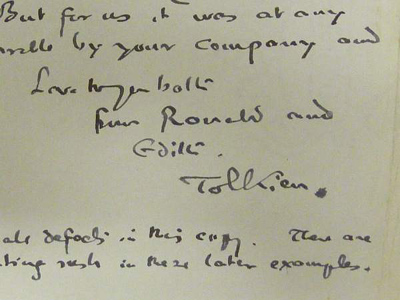 But for us it was at any
by your company and
Love to you both
from Ronald and
Edith.
Tolkien.
defects in this copy. There are
in these later examples.